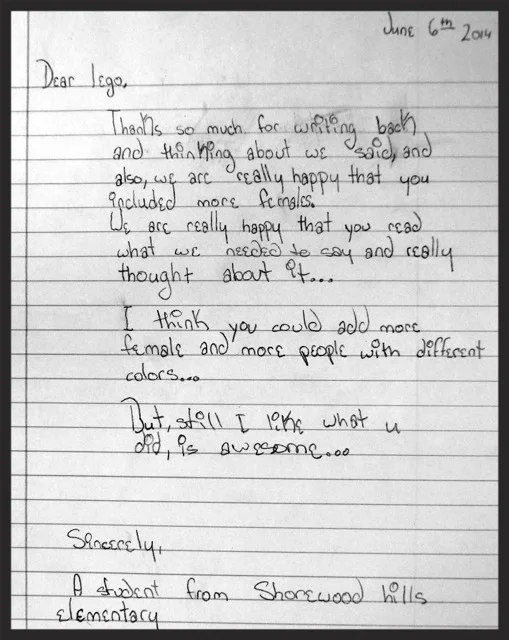 June 6th 2014
Dear Lego,
Thanks so much for writing back
and thinking about we said, and
also, we are really happy that you
included more females.
We are really happy that you read
what we needed to say and really
thought about it...
I think you could add more
female and more people with different
colors...
But, still I like what u
did, is awesome...
Sincerely,
A student from Shorewood hills
elementary